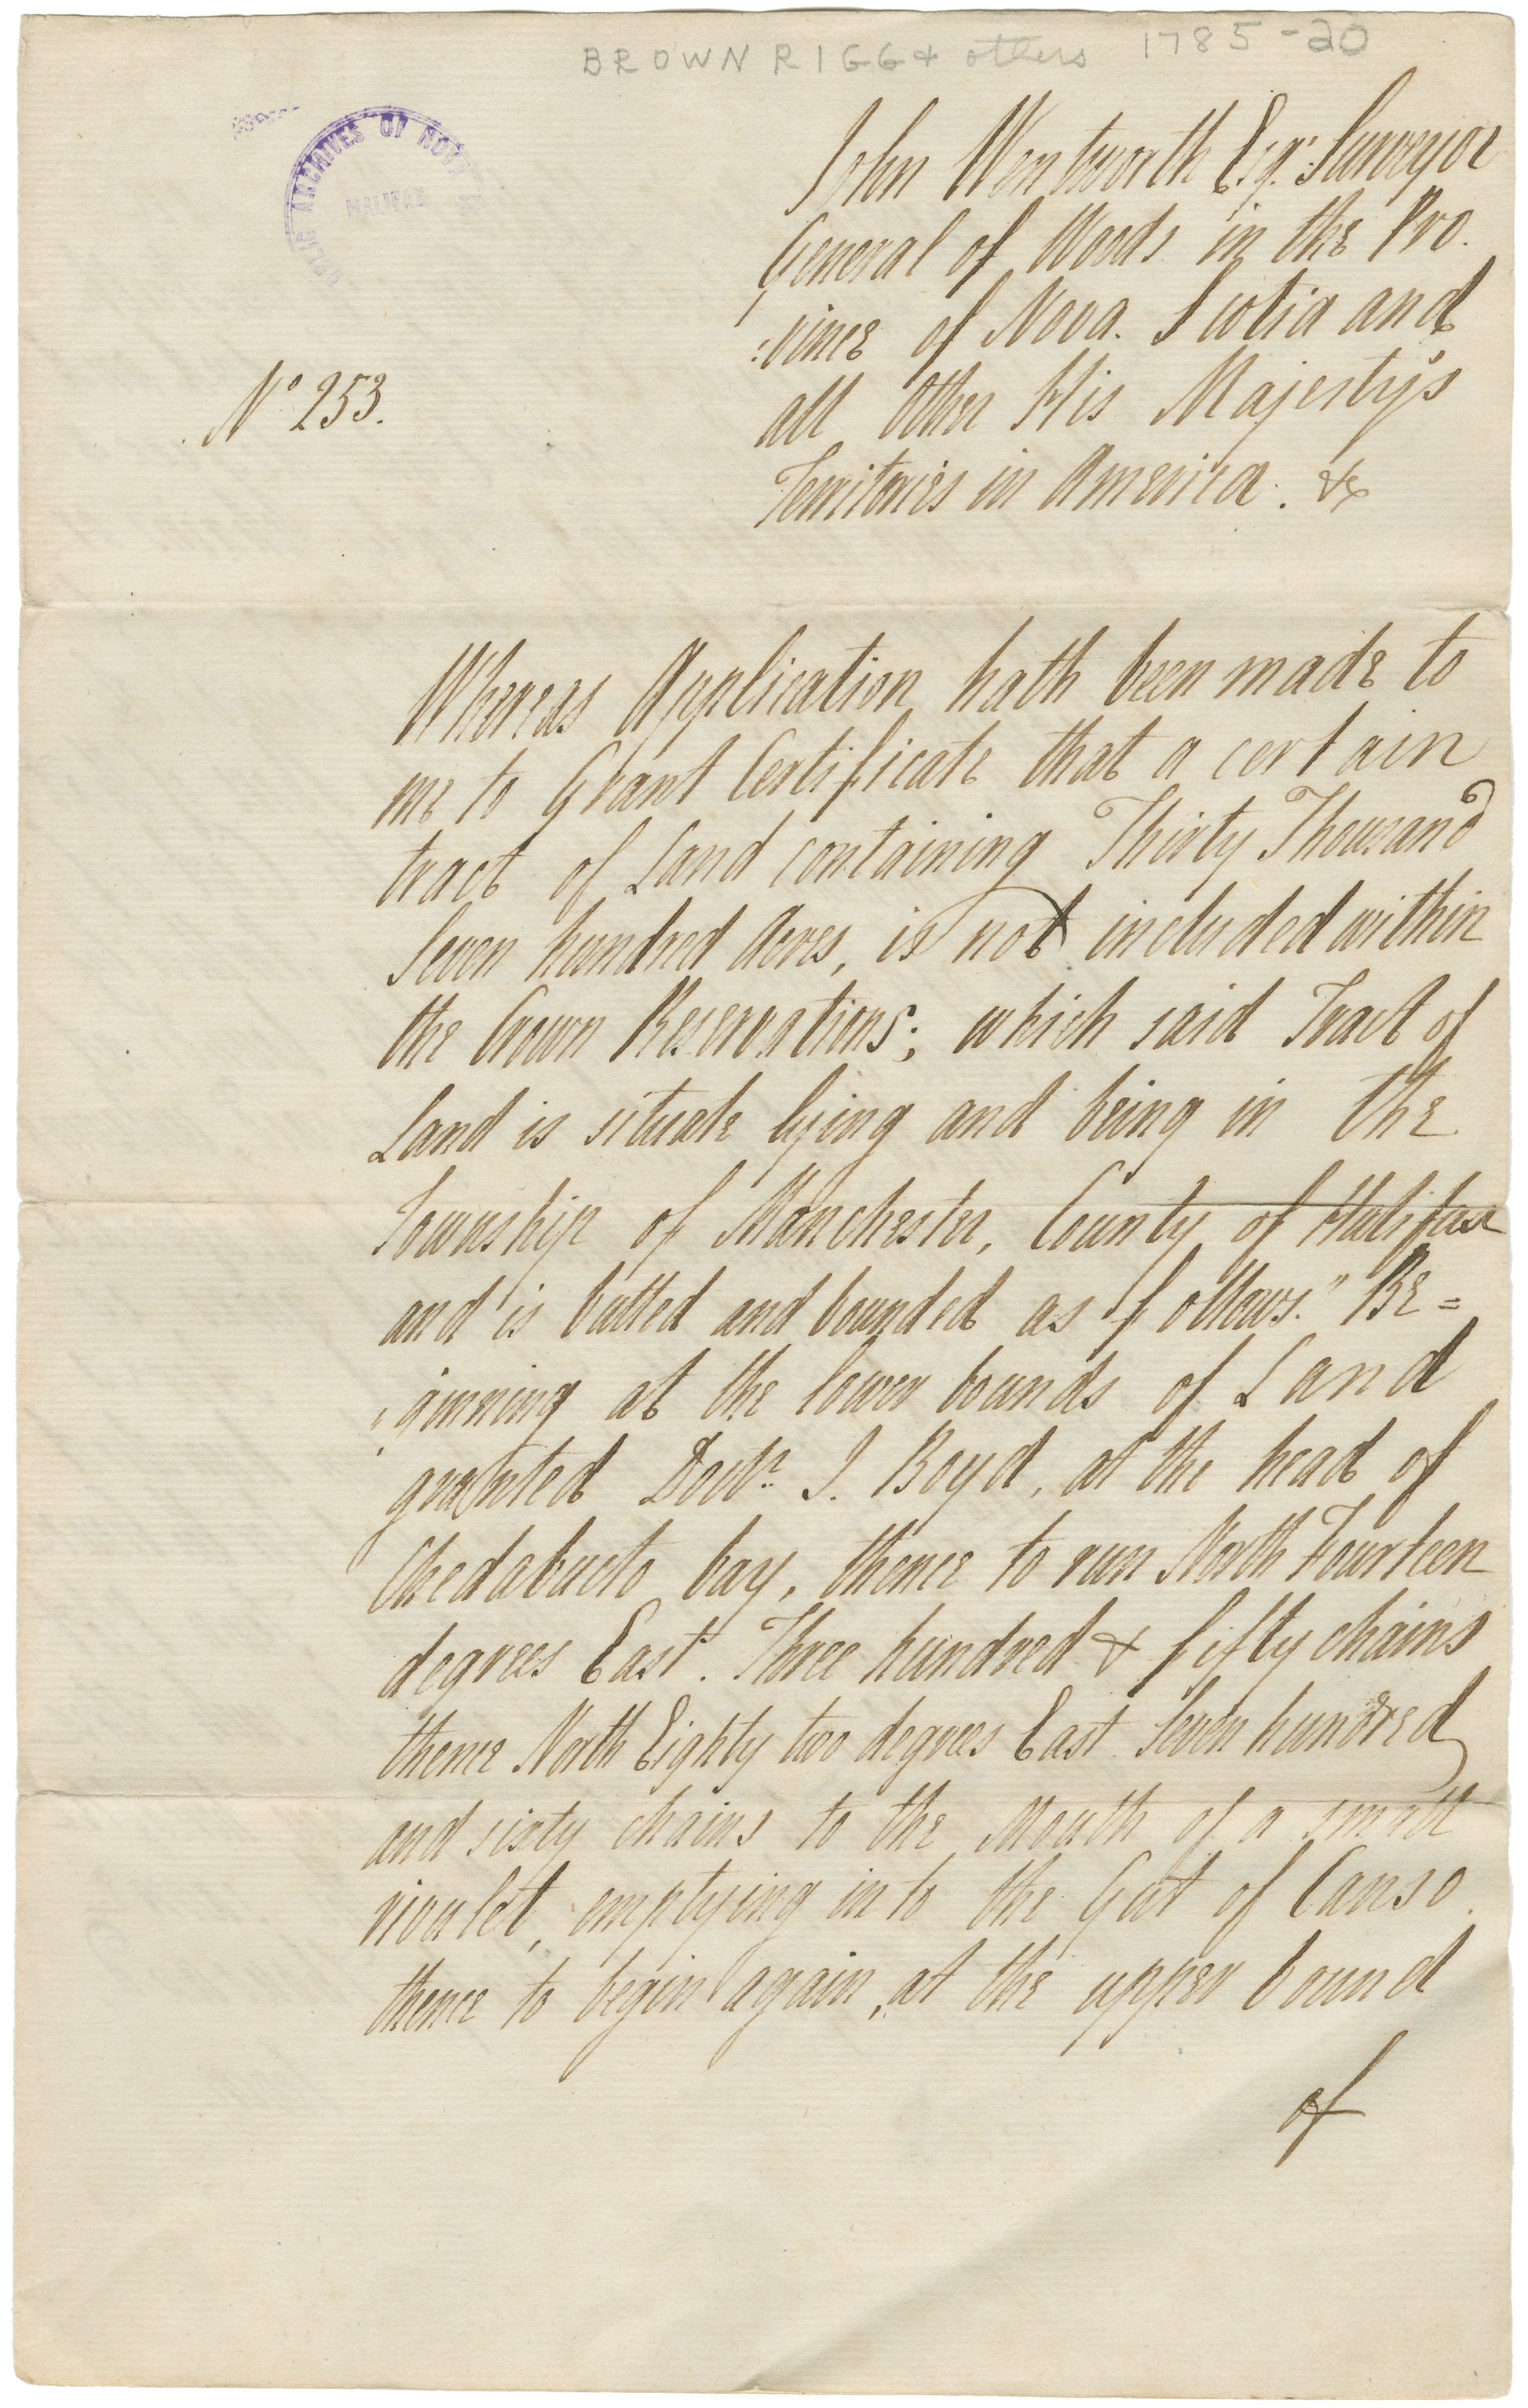 BROWNRIGG & others 1785-20
PUBLIC ARCHIVES OF NOVA
HALIFAX
John Wentworth Esqr. Surveyor
General of Woods in the Pro.
:vince of Nova. Scotia and
all Other His Majesty's
Territories in America. &c
No 253.
Whereas Application hath been made to
me to Grant Certificate that a certain
tract of Land containing Thirty Thousand
Seven hundred Acres, is not included within
the Crown Reservations; which said Tract of
Land is situate lying and being in the
Township of Manchester, County of Halifax
and is butted and bounded as follows." Be=
"ginning at the lower bounds of Land
granted Doctr. J. Boyd, at the head of
Chedabucto bay, thence to run North Fourteen
degrees East. Three hundred & fifty chains
thence North Eighty two degrees East Seven hundred
and sixty chains to the Mouth of a small
rivulet, emptying into the Gut of Canso.
thence to begin again, at the upper bound
of